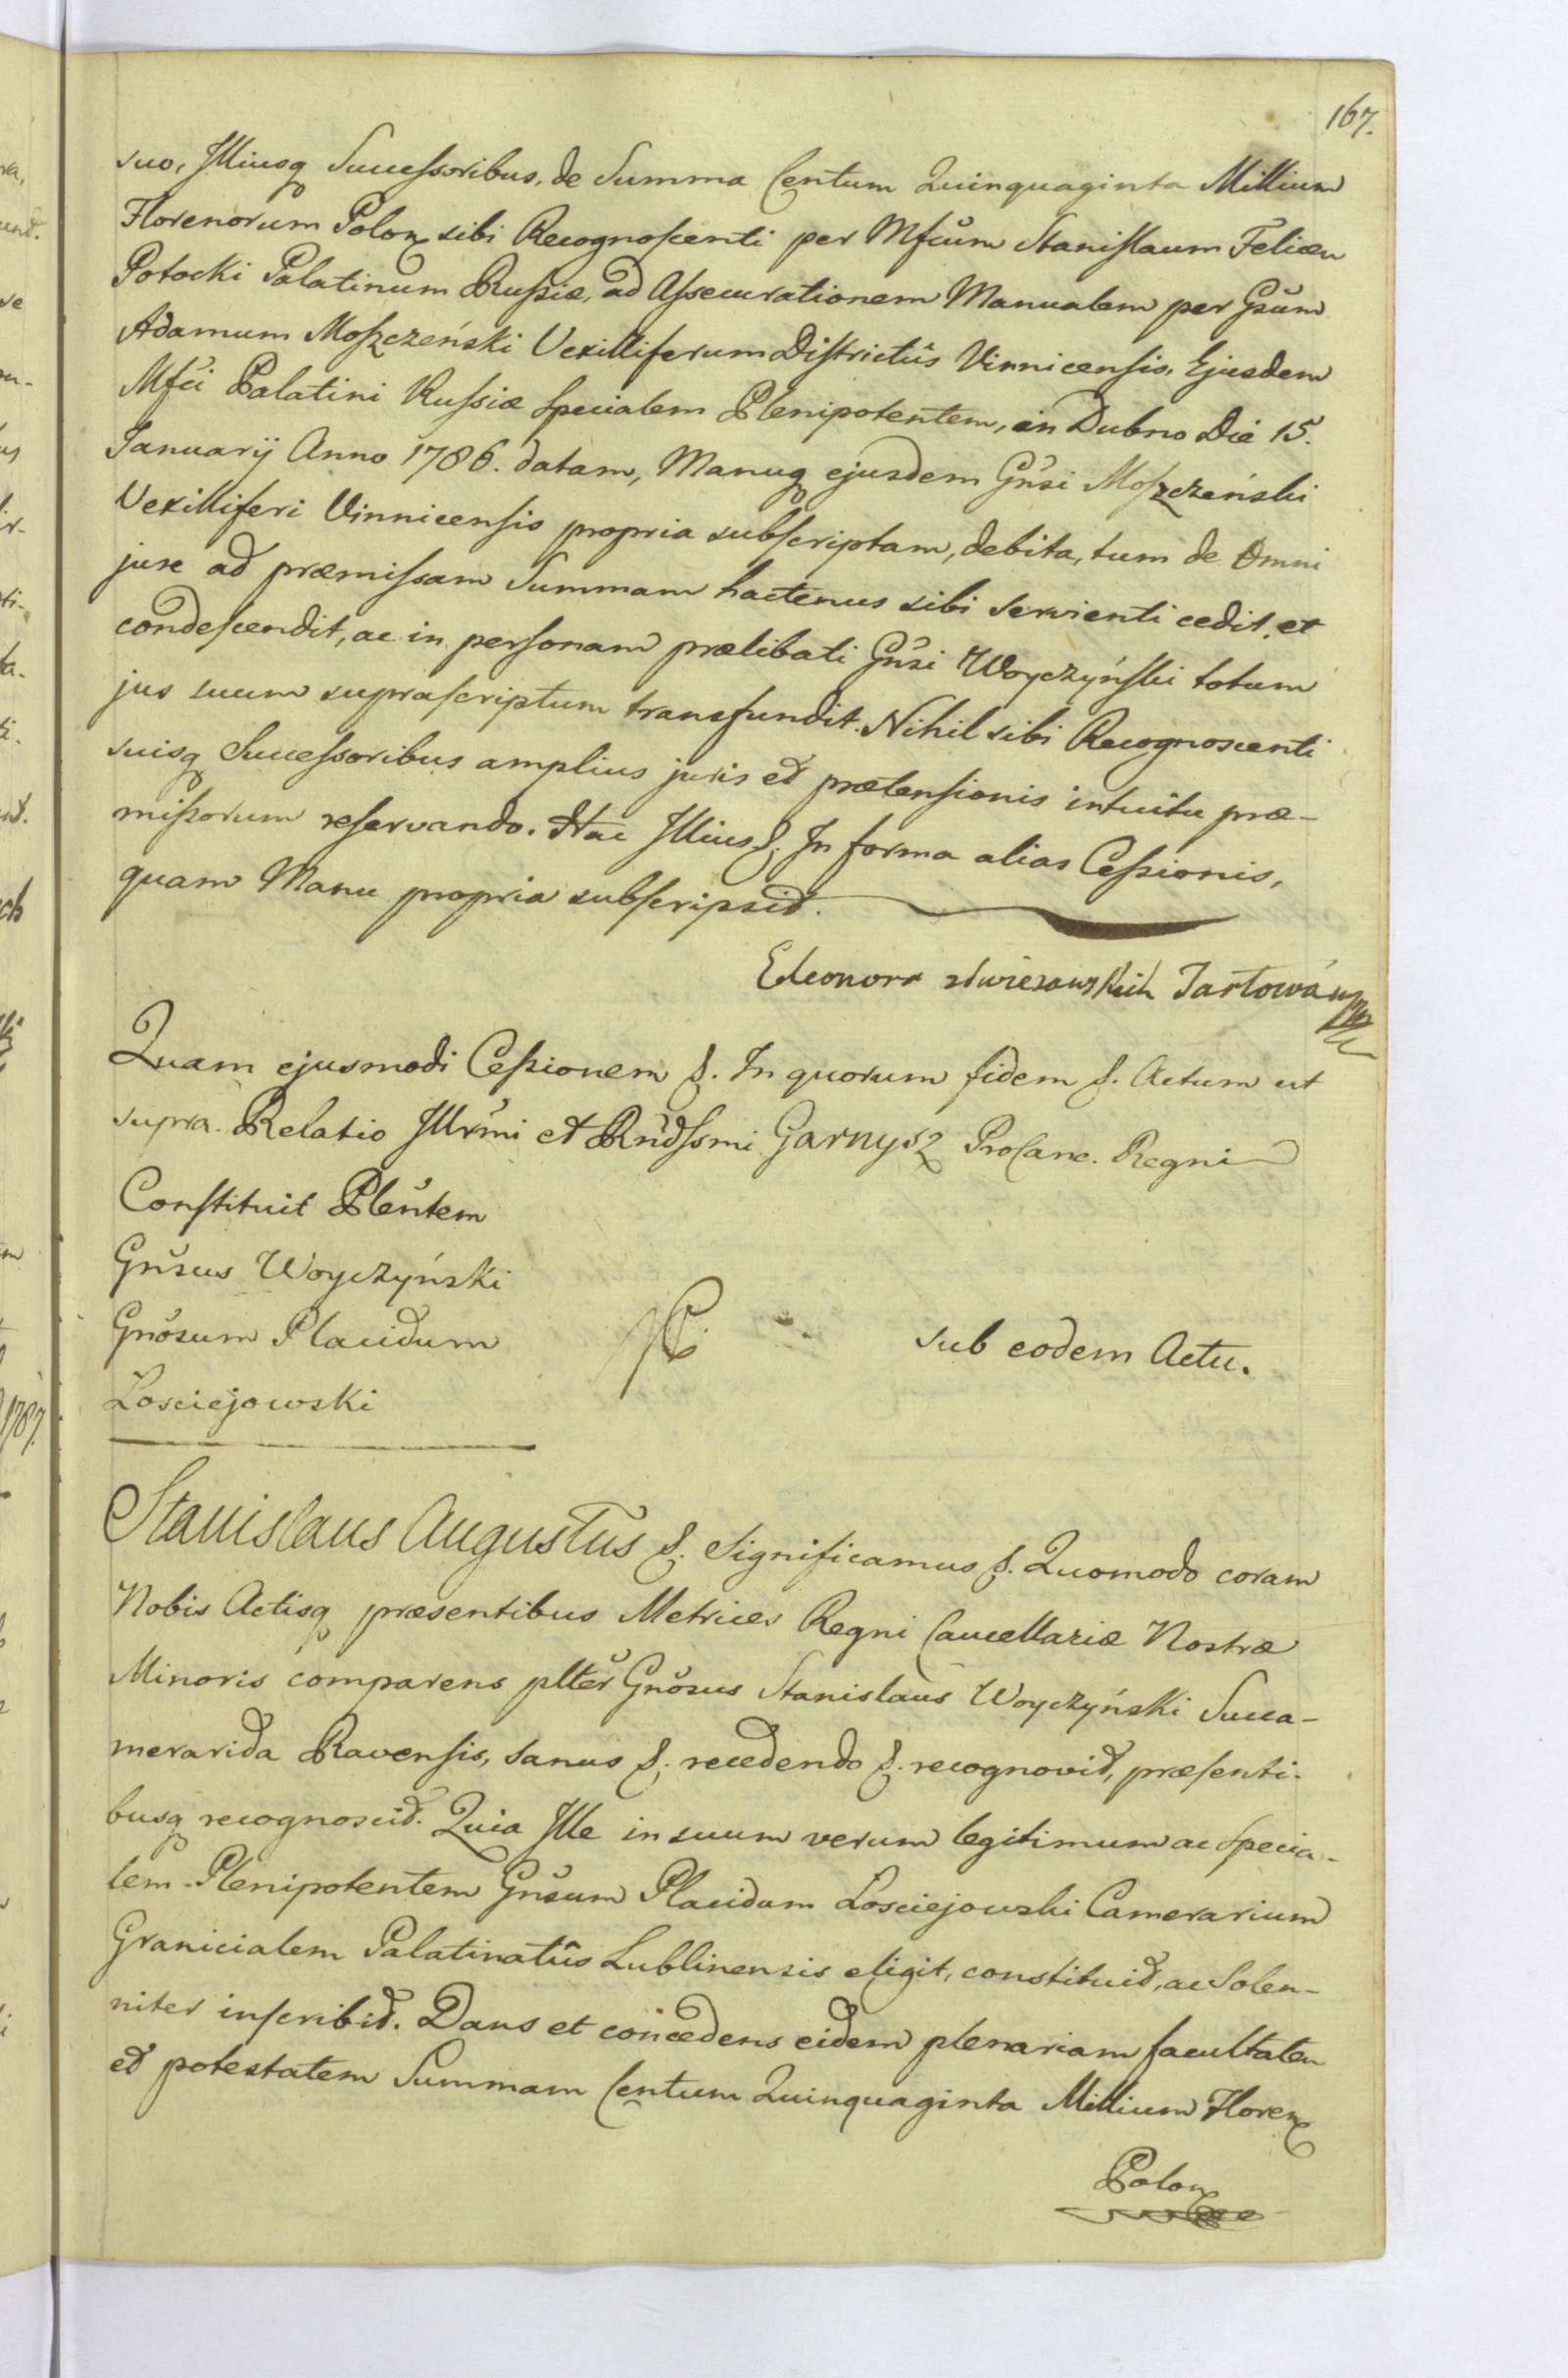 167.
suo, Illiusq Successoribus, de Summa Centum Quinquaginta Millium
Florenorum Polon sibi Recognoscenti per Mfcum Stanislaum Felicem
Potocki Palatinum Russiæ, ad Assecurationem Manualem per Gsum
Adamum Moszczeński Vexilliferum Districtûs Vinnicensis, Ejusdem
Mfci Palatini Russiæ specialem Plenipotentem, in Dubno Die 15.
Januarij Anno 1786. datam, Manuq ejusdem Gnsi Moszczeński
Vexilliferi Vinnicensis propria subscriptam, debita, tum de Omni
jure ad præmissam Summam hactenus sibi servienti cedit, et
condescendit, ac in personam prælibati Gnsi Woyczyński totum
jus suum suprascriptum transfundit. Nihil sibi Recognoscenti
suisq Successoribus amplius juris et prætensionis intuitu præ-
missorum reservando. Hac Illius &. In forma alias Cessionis,
quam Manu propria subscripsit.
Eleonora Jarłowa
Quam ejusmodi Cessionem &. In quorum fidem &. Actum ut
supra. Relatio Illrmi et Rndssmi Garnysz ProCanc. Regni
Constituit Plentem
Gnsus Woyczyński
Gnosum Placidum
Łosciejowski
sub eodem Actu.
Stanislaus Augustus &. Significamus &. Quomodo coram
Nobis Actisq præsentibus Metrices Regni Cancellariæ Nostræ
Minoris comparens plter Gnosus Stanislaus Woyczyński Succa-
merarida Ravensis, sanus &. recedendo &. recognovit, præsenti-
busq recognoscit. Quia Ille in suum verum legitimum ac specia-
lem Plenipotentem Gnsum Placidum Łosciejowski Camerarium
Granicialem Palatinatûs Lublinensis eligit, constituit, ac Solen-
niter inscribit. Dans et concedens eidem plenariam facultatem
et potestatem Summam Centum Quinquaginta Millium Floren
Polon